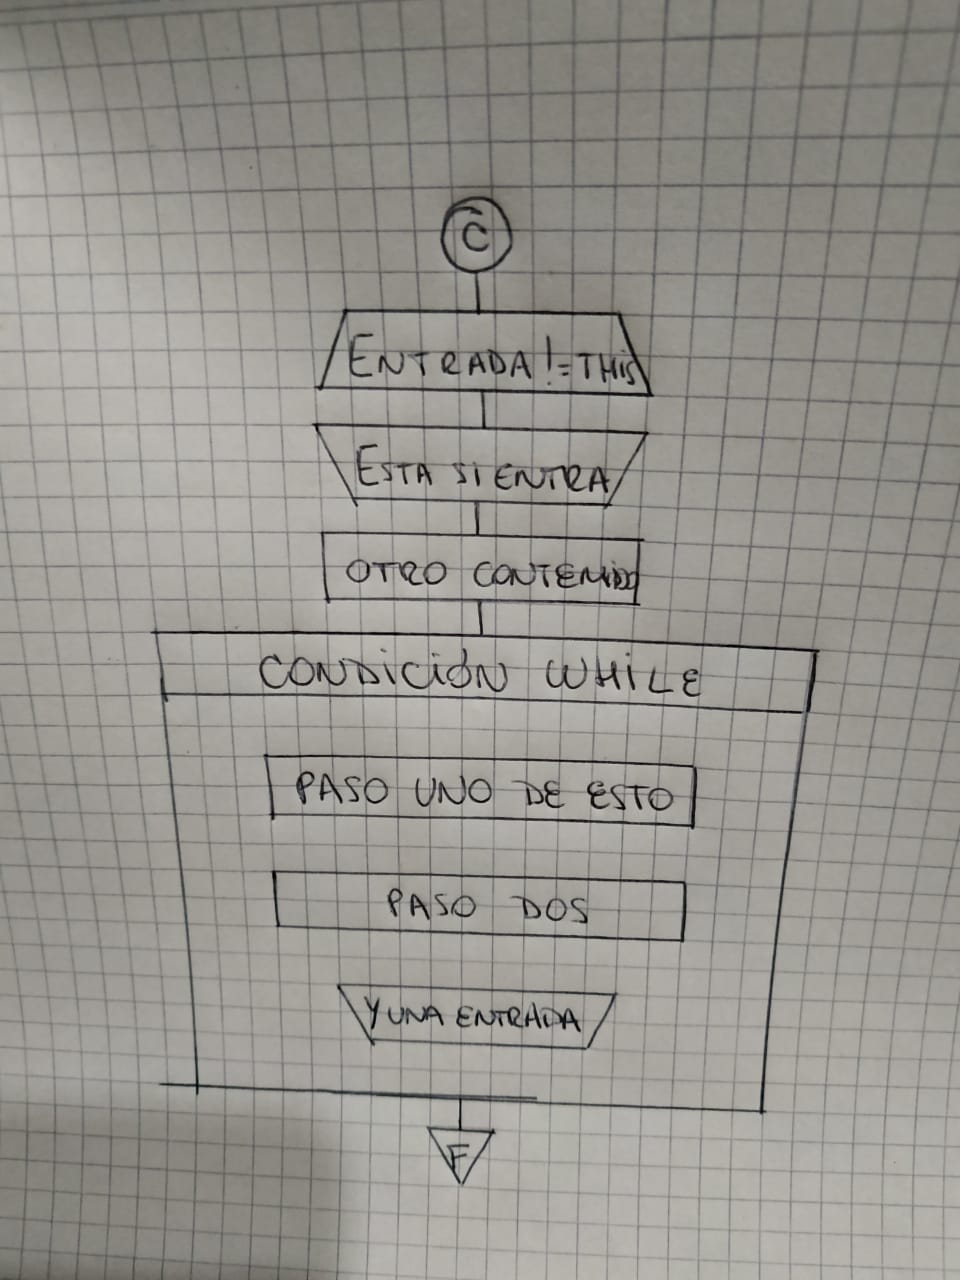 C
ENTRADA != THIS
ESTA SI ENTRA
OTRO CONTENIDO
CONDICIÓN WHILE
PASO UNO DE ESTO
PASO DOS
Y UNA ENTRADA
F